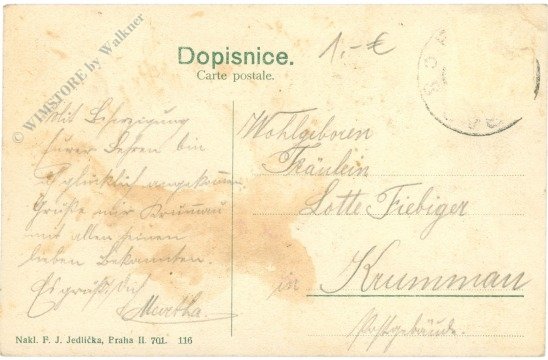 Dopisnice.
Carte postale.
1,- €
© WIMSTORE by Walkner
Mit
bin
ich glücklich angekommen
Grüße mir Krummau
mit allen seinen
lieben Bekannten.
Es grüßt Dich
Martha
Wohlgeboren
Fräulein
Lotte Fiebiger
in Krummau
Postgebäude.
Nakl. F. J. Jedlička, Praha II. 701. 116